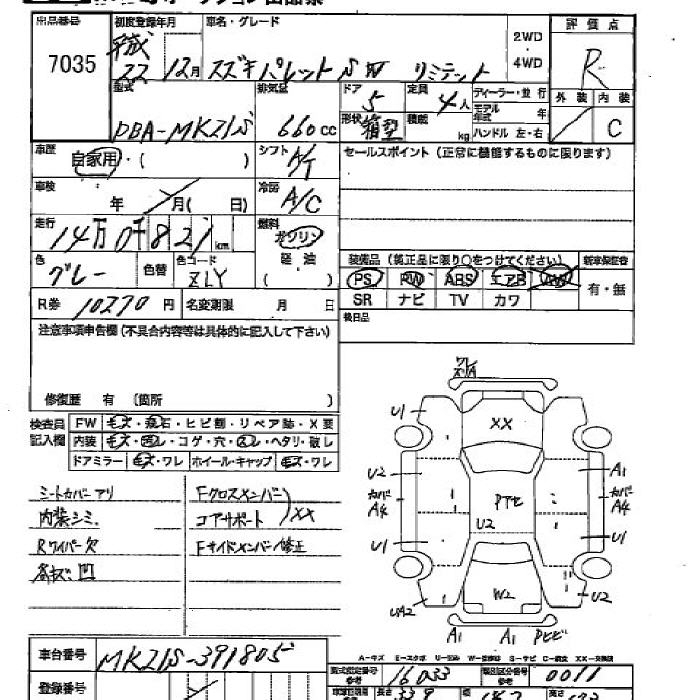 出品番号 初度登録年月 車名・グレード 2WD・4WD 評価点
7035 平成22 12月 スズキ パレット SW リミテッド R
型式 排気量 ドア 定員 ディーラー・並行 外装 内装
DBA-MK21S 660cc 5 4人 モデル年式 年 C
形状 箱型 積載 kg ハンドル 左・右
車歴 自家用・( ) シフト A/T セールスポイント(正常に機能するものに限ります)
車検 年 月( 日) 冷房 A/C
走行 14万0千821km 燃料 ガソリン 軽油 ( )
色 グレー 色替 色コード ZLY
装備品(純正品に限り○をつけてください) 新車保証書
PS PW ABS エアB AW 有・無
SR ナビ TV カワ
R券 10270円 名変期限 月 日 後日品
注意事項申告欄(不具合内容等は具体的に記入して下さい)
修復歴 有 (箇所 )
検査員記入欄 FW キズ・飛石・ヒビ割・リペア跡・X要
内装 キズ・汚レ・コゲ・穴・スレ・ヘタリ・破レ
ドアミラー キズ・ワレ ホイール・キャップ キズ・ワレ
シートカバーアリ Fクロスメンバー
内装シミ. コアサポート XX
Rワイパー欠 Fサイドメンバー修正
各板凹
U1 XX
U2 A1
カバーA4 PTセ カバーA4
U2
U1 U1
UA2 W2 U2
A1 A1 Pヒビ
A-キズ E-エクボ U-凹み W-波 S-サビ C-腐食 XX-交換済
車台番号 MK21S-391805
型式指定番号 参考 16033 類別区分番号 参考 0011
登録番号 長さ 339 147 高さ